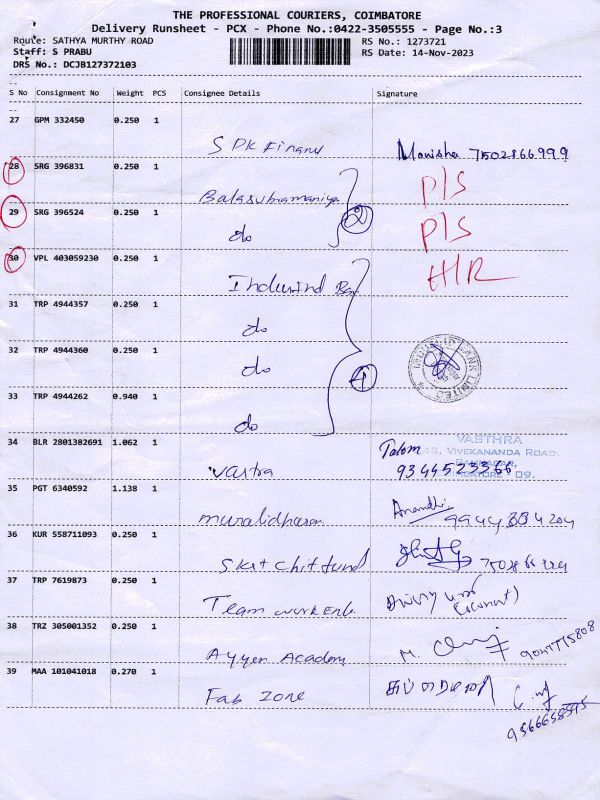 THE PROFESSIONAL COURIERS, COIMBATORE
Delivery Runsheet - PCX - Phone No.:0422-3505555 - Page No.:3
Route: SATHYA MURTHY ROAD RS No.: 1273721
Staff: S PRABU RS Date: 14-Nov-2023
DRS No.: DCJB127372103
S No Consignment No Weight PCS Consignee Details Signature
27 GPM 332450 0.250 1
SPK Finanu Manisha 7502866999
28 SRG 396831 0.250 1
Balasubramaniya P/S
29 SRG 396524 0.250 1
do (2) P/S
30 VPL 403059230 0.250 1
Indusind Ban H/R
31 TRP 4944357 0.250 1
do
32 TRP 4944360 0.250 1
do (4) INDUSIND BANK LIMITED
33 TRP 4944262 0.940 1
do
34 BLR 2801382691 1.062 1
vastra VASTHRA
VIVEKANANDA ROAD,
35 PGT 6340592 1.138 1
muralidharan Anandhi
36 KUR 558711093 0.250 1
SKS+ Chit fund
37 TRP 7619873 0.250 1
Team work Ent. (Coconut)
38 TRZ 305001352 0.250 1
Ayyen Academy M.
39 MAA 101041018 0.270 1
Fab Zone
9566658595